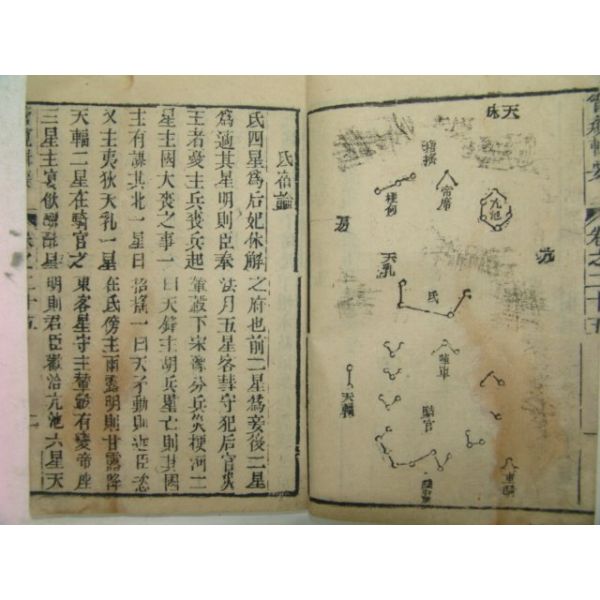 卷之二十五
天
招搖
帝席
亢池
梗河
天乳
氐
陣車
天輻
騎官
車騎
氐宿論
氐四星爲后妃休解之府也前二星爲妾後二星
爲適其星明則臣奉法月五星客彗守犯后宮災
王者憂主兵喪兵起軍敗下宋豫分兵災梗河二
星主國大喪之事一曰天鋒主胡兵星亡則其國
主有謀其北一星曰招搖一曰天矛動則近臣恣
又主夷狄天乳一星在氐傍主雨露明則甘露降
天輻二星在騎官之東客星守主輦轂有變帝座
三星主宴飲酬酢星明則君臣歡洽亢池六星天
卷之二十五 二